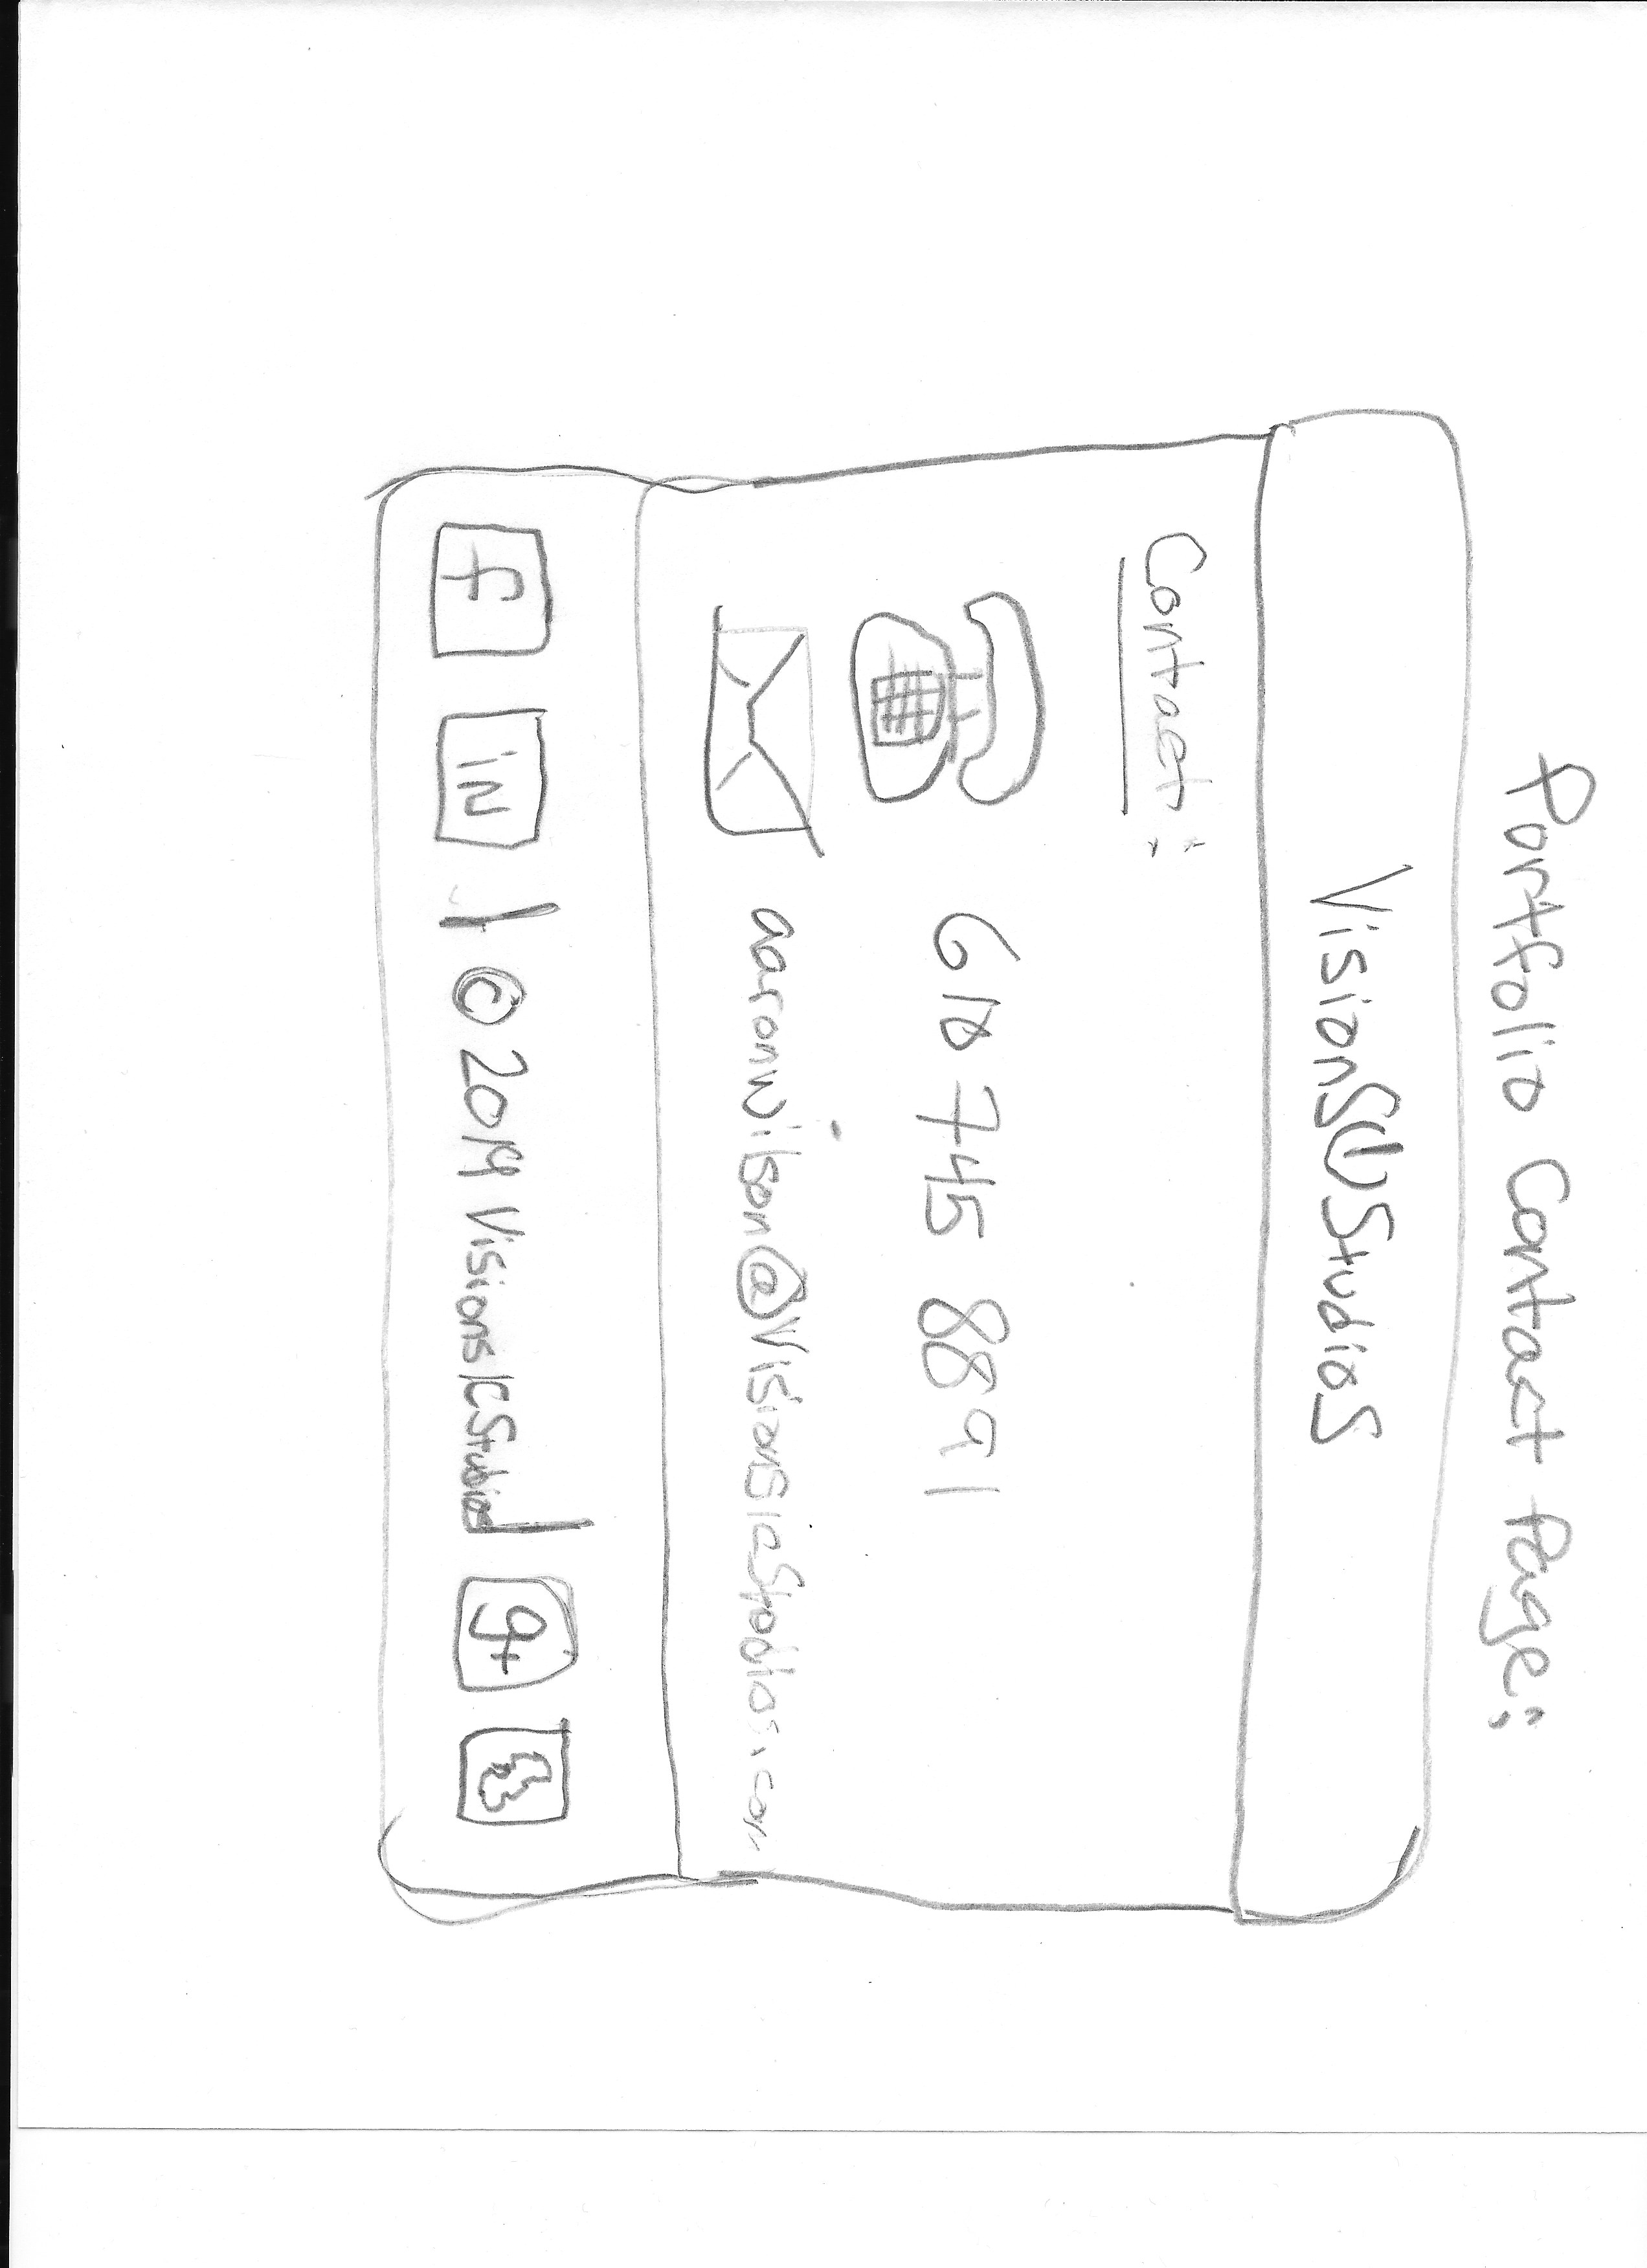 Portfolio Contact Page:
Visions Studios
Contact:
610 745 8891
aaronwilson@VisionsICStudios.com
f in | © 2019 VisionsICStudios | g+